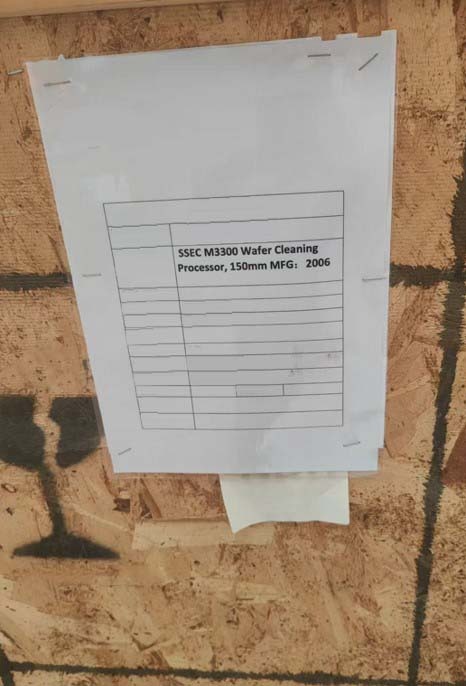 SSEC M3300 Wafer Cleaning
Processor, 150mm MFG: 2006